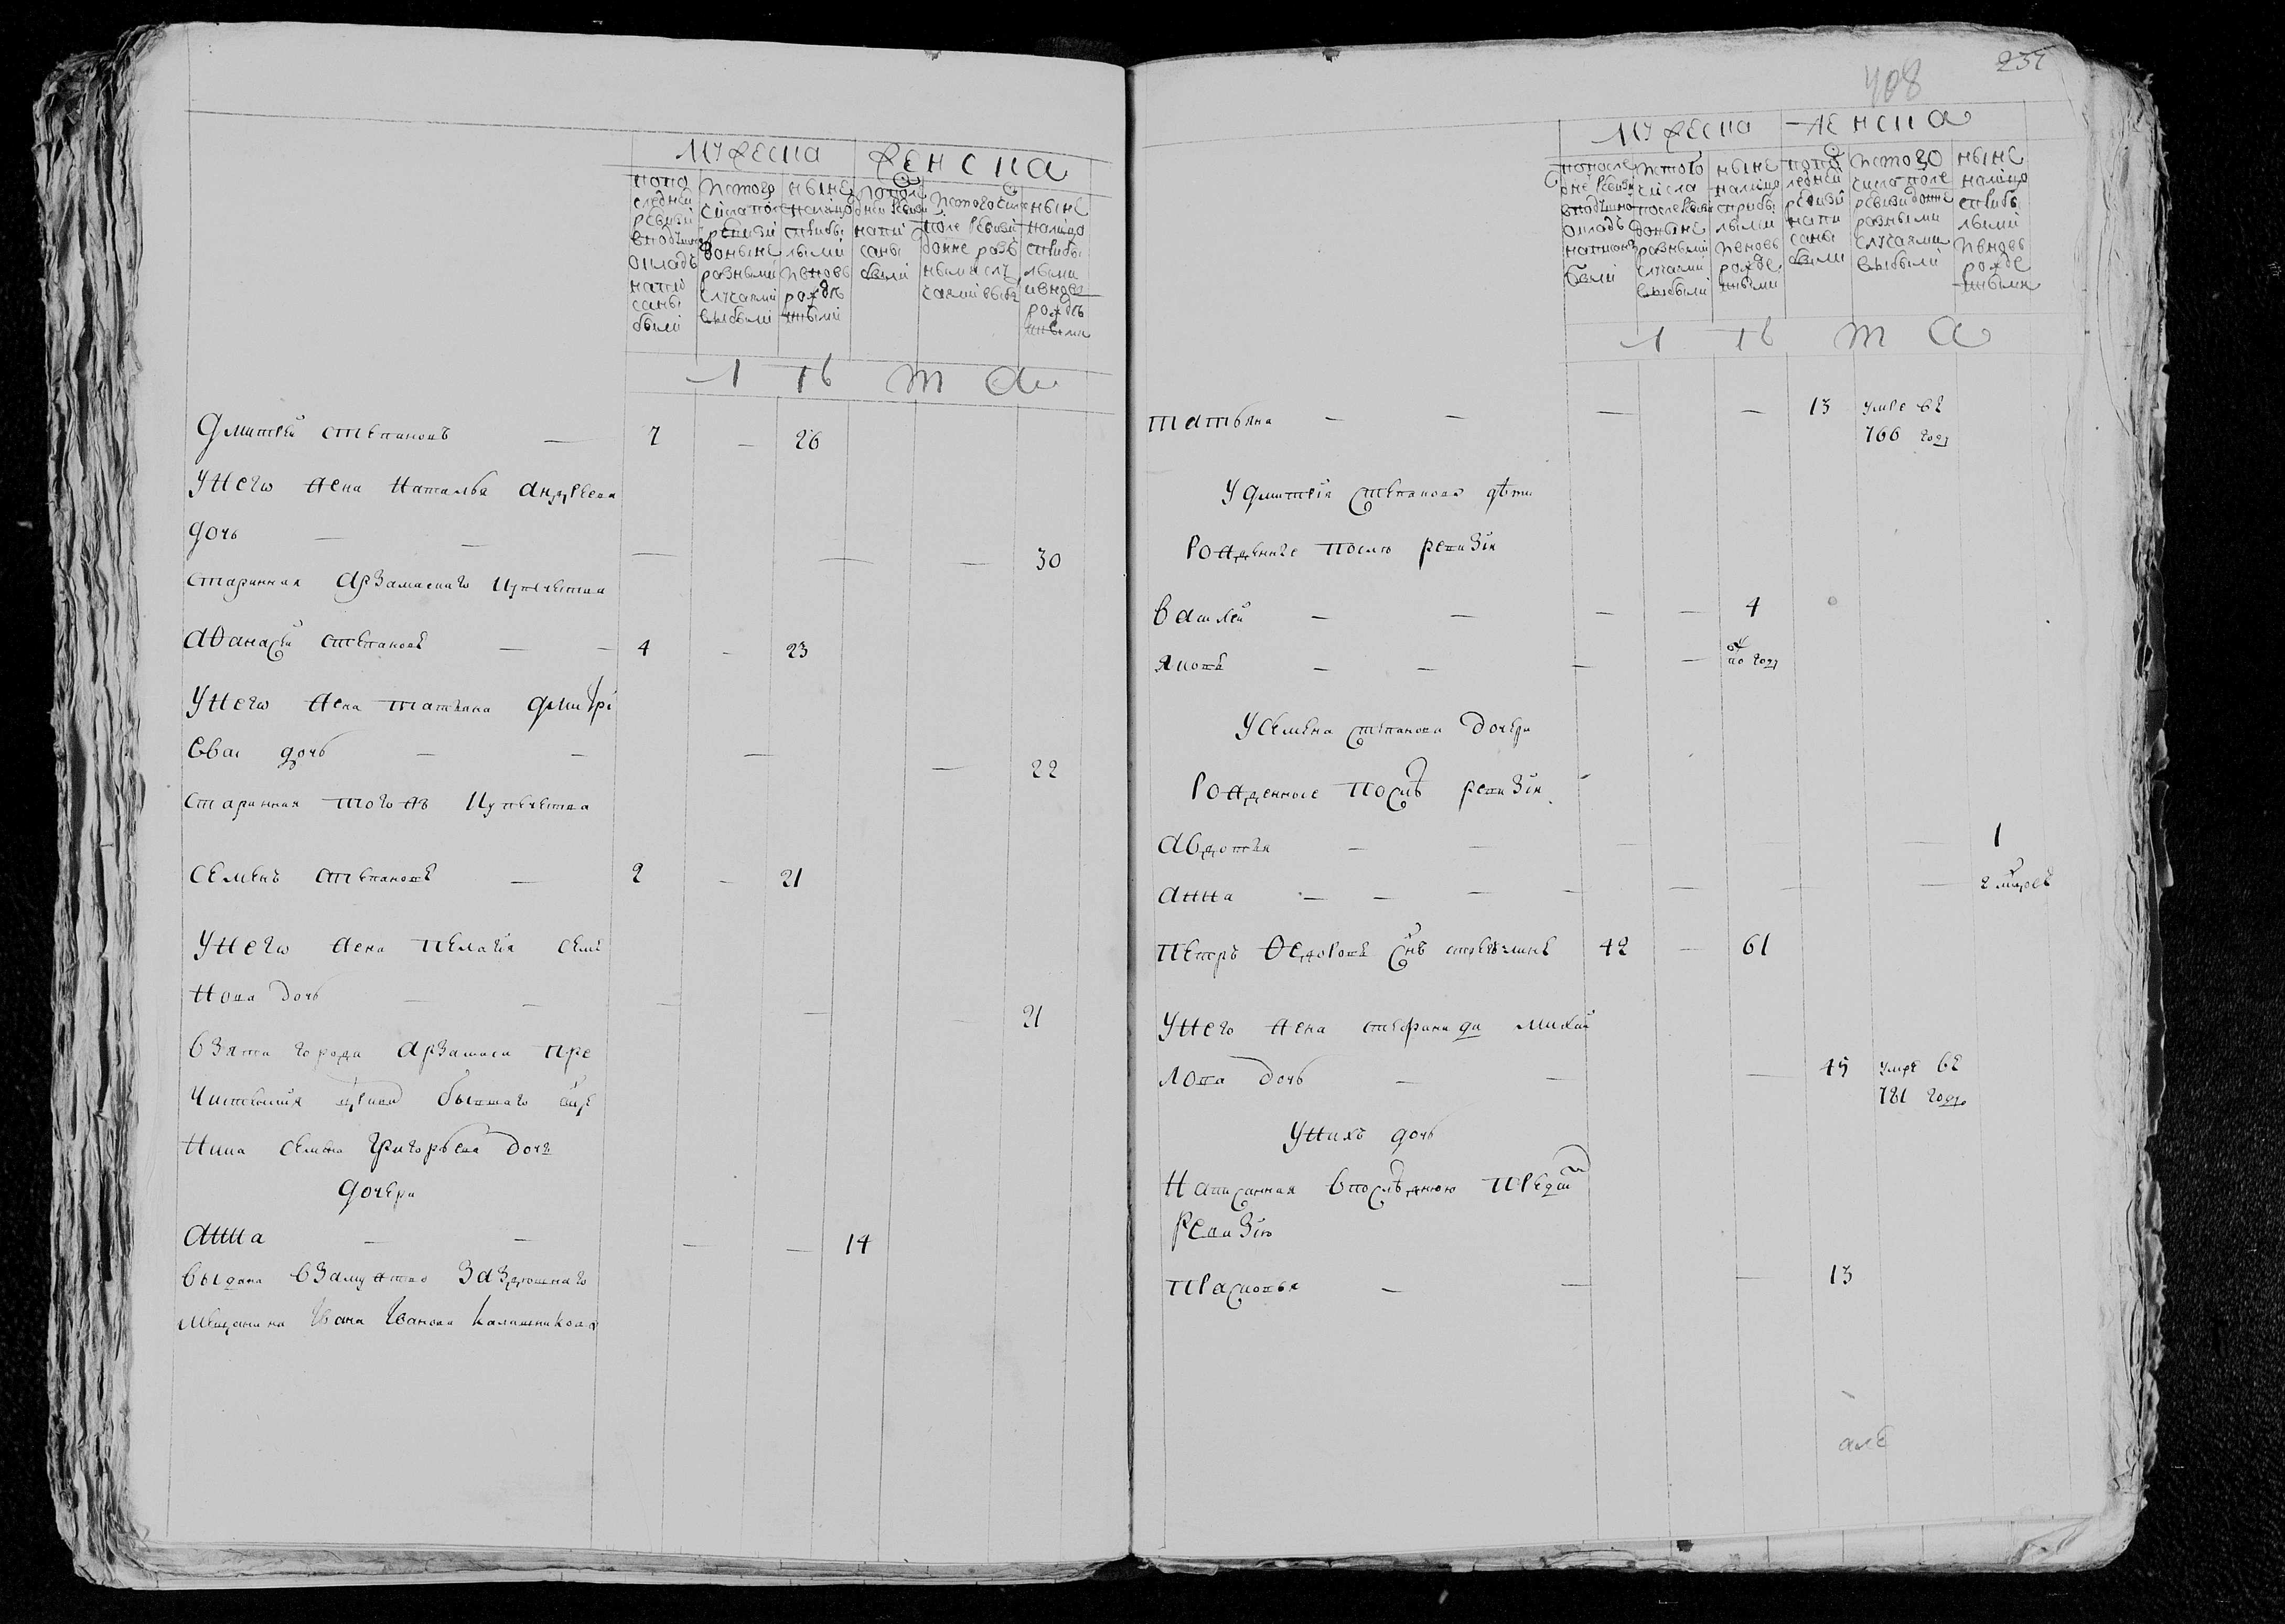 мужеска женска
попо
следней
ревизи
вподушно
окладъ
напи
саны
были
истого
числа после
ревизи
доныне
разными
случаями
выбыли
ныне
налицо
сприбы
лыми
ивновь
рожде
нными
попосле
дней ревизи
напи
саны
были
истого числа
после ревизи
доне разъ
ными слу
чаями выбы
ныне
налицо
сприбы
лыми
ивновь
рожде
нными
лѣта
Дмитреи степановъ — 7 — 26
Унего жена наталья андреева
дочь — — — — — 30
старинная арзамаскаго купечества
аѳанасеи степановъ — — 4 — 23
Унего жена татьяна дмитрі
ева дочь — — — — 22
старинная тогожъ купечества
семенъ степановъ — 2 — 21
Унего жена пелагія семе
нова дочь — — — — — 21
взята города арзамаса пре
чистенския церкви бывшаго
ника семена григорьева дочь
дочери
анна — — — — 14
выдана взамужство заздешнаго
мещанина ивана иванова калашникова
408
237
мужеска женска
попосле
дне ревизи
вподушно
окладъ
написаны
были
исто го
числа
после ревизи
доныне
разными
случаями
выбыли
ныне
налицо
сприбы
лыми
ивновь
рожде
нными
попо
ледней
ревизи
напи
саны
были
истого
числа после
ревизи доне
разными
случаями
выбыли
ныне
налицо
сприбы
лыми
ивновь
рожде
нными
лѣта
татьяна — — — — 13 умре въ
766 году
У дмитрія степанова дѣти
рожденные после ревизіи
василеи — — — — 4
яковъ — — — — по году
У семена степанова дочери
рожденные послѣ ревизіи
авдотья — — — — 1
анна — — — — — — — 2
петръ ѳедоровъ снъ 42 — 61
Унего жена степанида михаи
лова дочь — — — 45 умре въ
781 году
Унихъ дочь
написанная впослѣднюю пред
ревизію
прасковья — — — 13
але